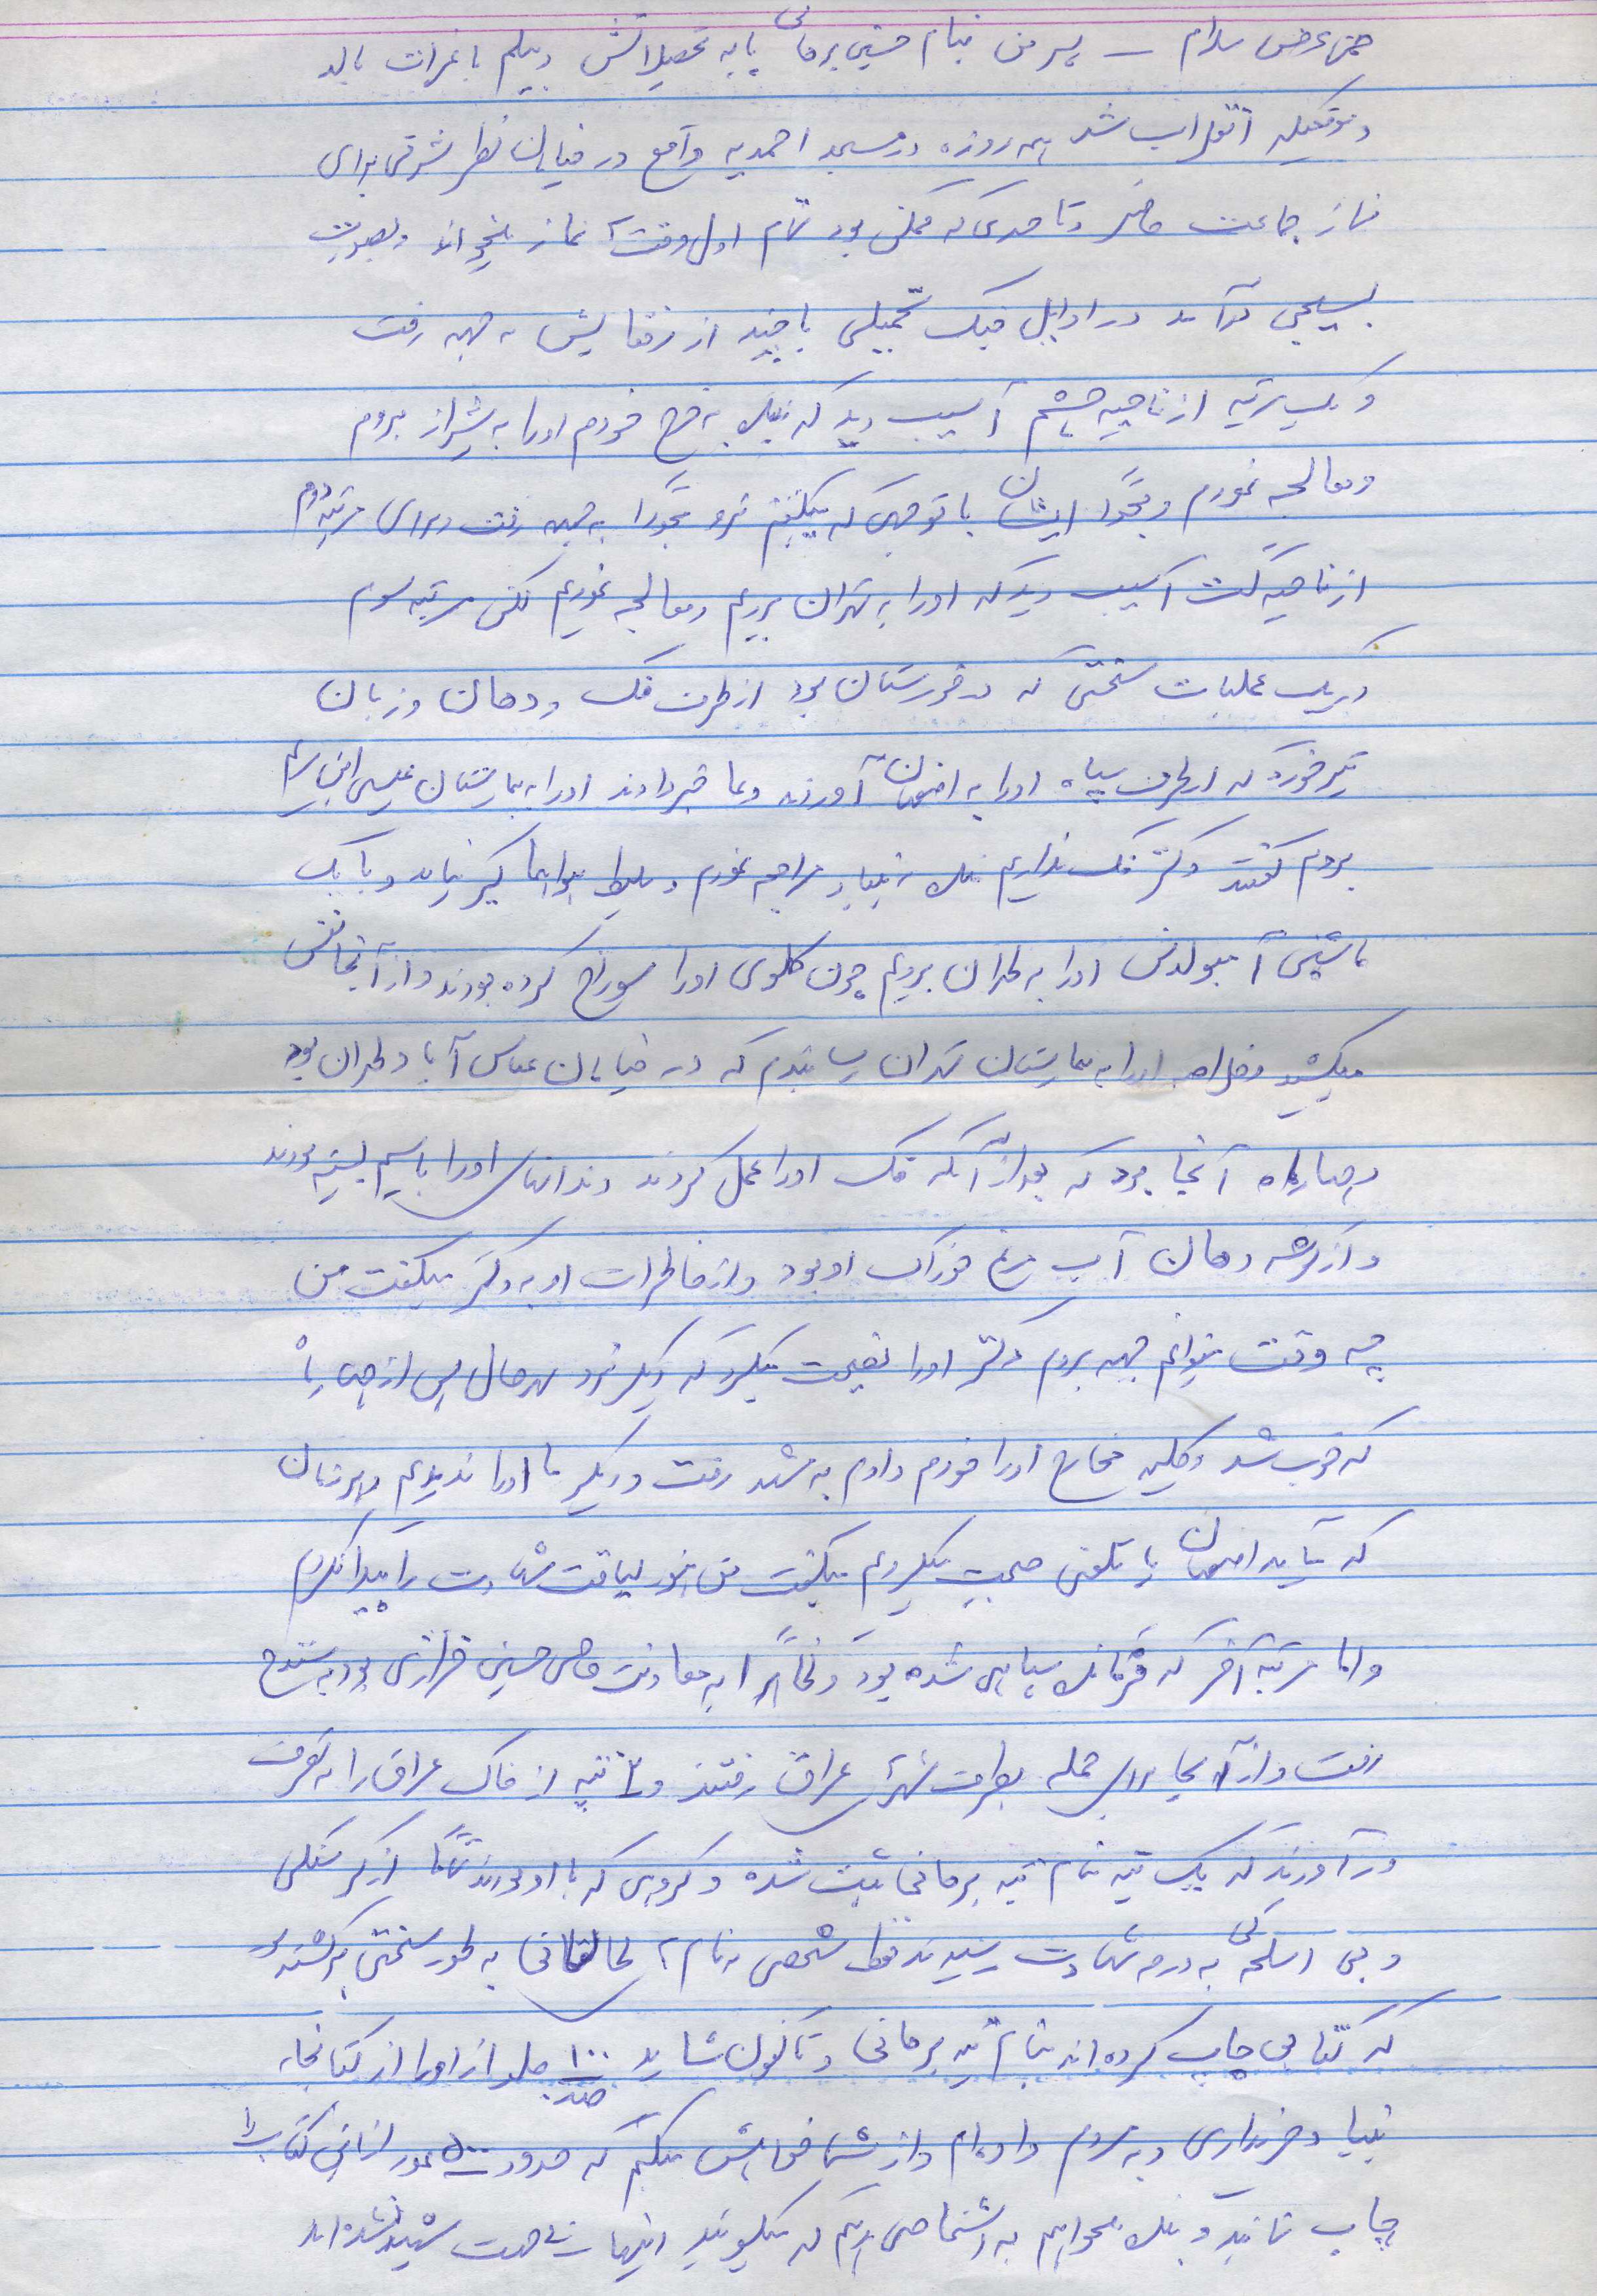 ضمن عرض سلام – پسر من بنام حسین برهانی پایه تحصیلاتش دیپلم با نمرات بالا
و موقعیکه انقلاب شد همه روزه در مسجد احمدیه واقع در خیابان نظر شرقی برای
نماز جماعت حاضر و تا حدی که ممکن بود تمام اول وقت نماز میخواند و بصورت
بسیجی در اوایل جنگ تحمیلی با چند از رفقایش به جبهه رفت
و یک مرتبه از ناحیه چشم آسیب دید که بنده به خرج خودم او را به شیراز بردم
و معالجه نمودم و مجدداً ایشان با توجهی که میگفتم نرو مجدداً به جبهه رفت و برای مرتبه دوم
از ناحیه آسیب دید که او را به تهران بردیم و معالجه نمودیم لکن مرتبه سوم
در یک عملیات سختی که در خوزستان بود از طرف فک و دهان و زبان
تیر خورد که از طرف سپاه او را به اصفهان آوردند و بما خبر دادند او را به بیمارستان عیسی ابن مریم
بردم گفتند دکتر فک نداریم بنده به بنیاد مراجعه نمودم و بلیط هواپما گیر نیامد و با یک
ماشین آمبولانس او را به طهران بردیم چون گلوی او را سوراخ کرده بودند و از آنجا نفس
میکشید او را به بیمارستان تهران رساندم که در خیابان عباس آباد طهران بود
و چهار ماه آنجا بود که بعد از آنکه فک او را عمل کردند دندانهای او را با سیم بسته بودند
و از گوشه دهان آب مرغ خوراک او بود و از خاطرات او به دکتر میگفت من
چه وقت میتوانم جبهه بروم دکتر او را نصیحت میکرد که دیگر نرود بهر حال پس از چهار ماه
که خوب شد و کلیه مخارج او را خودم دادم به مشهد رفت و دیگر ما او را ندیدیم و هر زمان
که با تلفن صحبت میکردیم میگفت من هنوز لیاقت شهادت را پیدا نکردم
و اما مرتبه آخر که فرمانده سپاهی شده بود و ظاهراً به معاونت حاجی حسین خرازی بود به سنندج
رفت و از آنجا برای حمله بطرف شهرهای عراق رفتند و تپه از خاک عراق را به تصرف
در آوردند که یک تپه بنام تپه برهانی ثبت شده و گروهی که با او بودند تماماً از گرسنگی
و بی اسلحه‌گی به درجه شهادت رسیدند فقط شخصی به نام طالقانی به طور سختی برگشته بود
که کتابی چاپ کرده اند بنام تپه برهانی و تاکنون شاید ۱۰۰ صد جلد از او را از کتابخانه
بنیاد خریداری و به مردم داده ام و از شما خواهش میکنم که حدود ۵۰۰ عدد از این کتاب را
چاپ نمائید و بنده میخواهم به اشخاصی بدهم که میگویند اینها بی جهت شهید شده اند